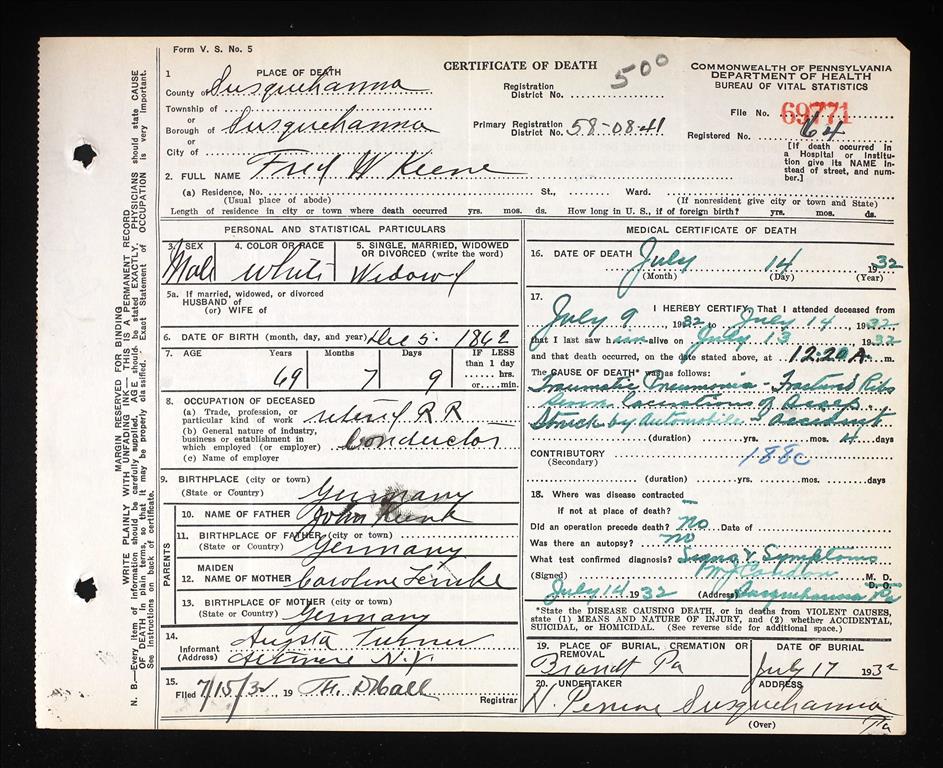 Form V. S. No. 5
CERTIFICATE OF DEATH
500
COMMONWEALTH OF PENNSYLVANIA
DEPARTMENT OF HEALTH
BUREAU OF VITAL STATISTICS
1 PLACE OF DEATH
County of Susquehanna
Township of
or
Borough of Susquehanna
or
City of
Registration
District No.
Primary Registration
District No. 58-08-41
File No. 69771
Registered No. 64
[If death occurred in
a Hospital or Institu-
tion give its NAME in-
stead of street, and num-
ber.]
2. FULL NAME Fred W Keene
(a) Residence, No. St., Ward.
(Usual place of abode) (If nonresident give city or town and State)
Length of residence in city or town where death occurred yrs. mos. ds. How long in U. S., if of foreign birth? yrs. mos. ds.
PERSONAL AND STATISTICAL PARTICULARS
3. SEX 4. COLOR OR RACE 5. SINGLE, MARRIED, WIDOWED
OR DIVORCED (write the word)
Male White Widowed
5a. If married, widowed, or divorced
HUSBAND of
(or) WIFE of
6. DATE OF BIRTH (month, day, and year) Dec 5. 1862
7. AGE Years Months Days IF LESS
than 1 day
hrs.
or min.
69 7 9
8. OCCUPATION OF DECEASED
(a) Trade, profession, or
particular kind of work retired R R
(b) General nature of industry,
business or establishment in
which employed (or employer) Conductor
(c) Name of employer
9. BIRTHPLACE (city or town)
(State or Country) Germany
PARENTS
10. NAME OF FATHER John
11. BIRTHPLACE OF FATHER (city or town)
(State or Country) Germany
12. MAIDEN
NAME OF MOTHER Caroline
13. BIRTHPLACE OF MOTHER (city or town)
(State or Country) Germany
14.
Informant Augsta Turner
(Address) N.Y.
15.
Filed 7/15/32 19 Hall
Registrar
MEDICAL CERTIFICATE OF DEATH
16. DATE OF DEATH July 14 1932
(Month) (Day) (Year)
17. I HEREBY CERTIFY, That I attended deceased from
July 9 1932 to July 14 1932
that I last saw him alive on July 13 1932
and that death occurred, on the date stated above, at 12:20 A. m.
The CAUSE OF DEATH* was as follows:
Traumatic Pneumonia - Fractured Ribs
of Scalp
Struck by Automobile - Accident
(duration) yrs. mos. 4 days
CONTRIBUTORY 188c
(Secondary)
(duration) yrs. mos. days
18. Where was disease contracted
if not at place of death?
Did an operation precede death? No Date of
Was there an autopsy? No
What test confirmed diagnosis? Signs & Symptoms
(Signed) M. D.
D. O.
July 14 1932 (Address) Susquehanna Pa
*State the DISEASE CAUSING DEATH, or in deaths from VIOLENT CAUSES,
state (1) MEANS AND NATURE OF INJURY, and (2) whether ACCIDENTAL,
SUICIDAL, or HOMICIDAL. (See reverse side for additional space.)
19. PLACE OF BURIAL, CREMATION OR
REMOVAL DATE OF BURIAL
Brandt Pa July 17 1932
20. UNDERTAKER ADDRESS
N. Perrine Susquehanna
Pa
(Over)
MARGIN RESERVED FOR BINDING
WRITE PLAINLY WITH UNFADING INK—THIS IS A PERMANENT RECORD
N. B.—Every item of information should be carefully supplied. AGE should be stated EXACTLY. PHYSICIANS should state CAUSE
OF DEATH in plain terms, so that it may be properly classified. Exact Statement of OCCUPATION is very important.
See instructions on back of certificate.